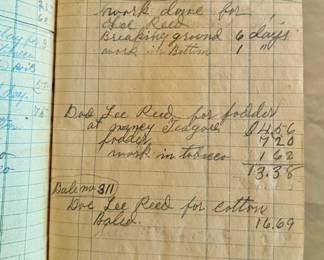 work done for
Lee Reed
Breaking ground 6 days
work in Bottom 1 "
Doc Lee Reed for fodder
at Nancy Teagues 4.56
fodder 7 20
work in tobacco 1 62
13.38
Bale no. 311
Doc Lee Reed for cotton
Baled. 16.69